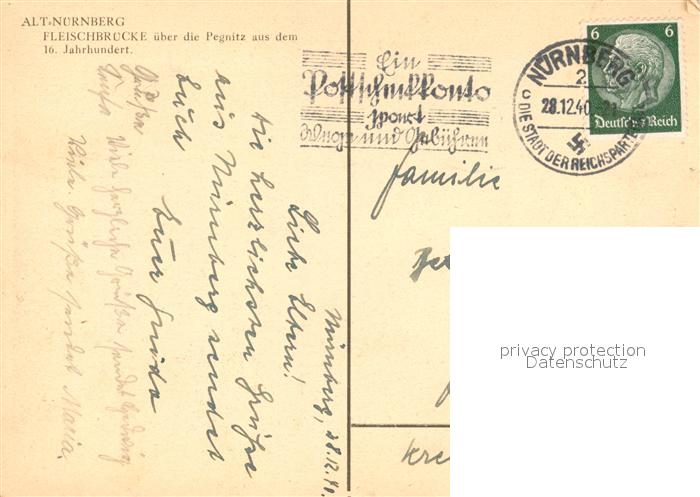 ALT-NÜRNBERG
FLEISCHBRÜCKE über die Pegnitz aus dem
16. Jahrhundert.
Ein
Postscheckkonto
spart
Wege und Gebühren
NÜRNBERG
2
28.12.40
DIE STADT DER REICHSPARTEI
6 6
Deutsches Reich
Nürnberg, 28.12.40.
Liebe Eltern!
Die herzlichsten Grüße
aus Nürnberg sendet
Euch
Euer Guido
Viele herzliche Grüße sendet Hedwig
Viele Grüße sendet Maria.
Familie
Kre
privacy protection
Datenschutz